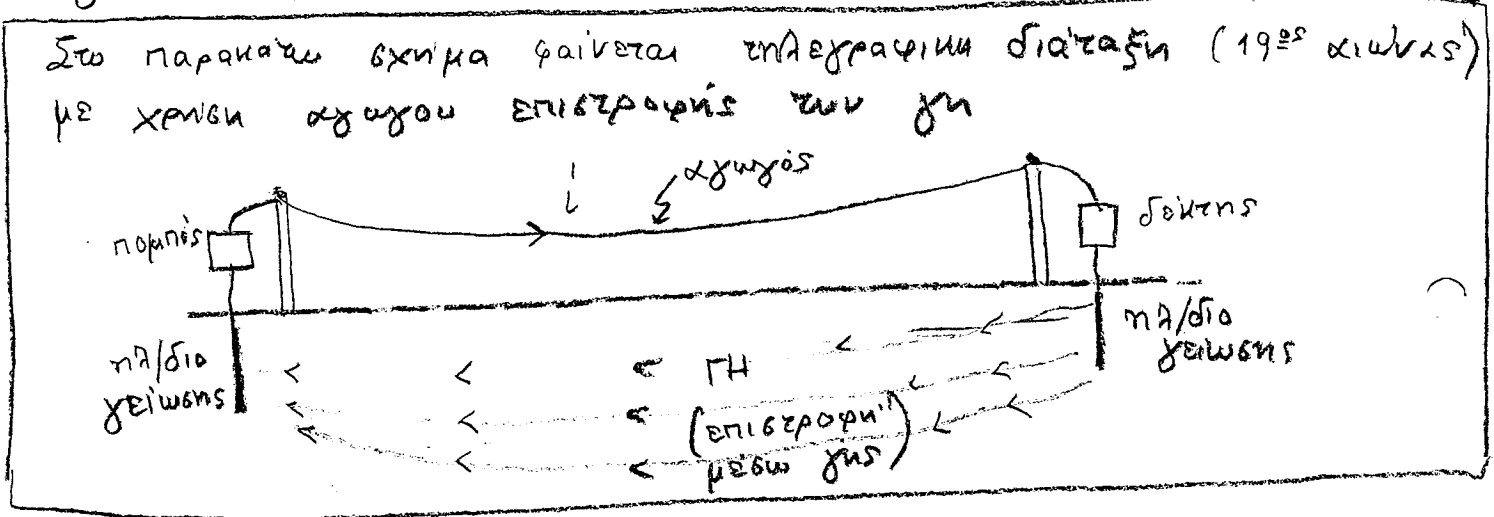 Στο παρακάτω σχήμα φαίνεται τηλεγραφική διάταξη (19ος αιώνας)
με χρήση αγωγού επιστροφής την γη
i
αγωγός
πομπός
δέκτης
ηλ/διο
γείωσης
ηλ/διο
γείωσης
ΓΗ
(επιστροφή
μέσω γης)